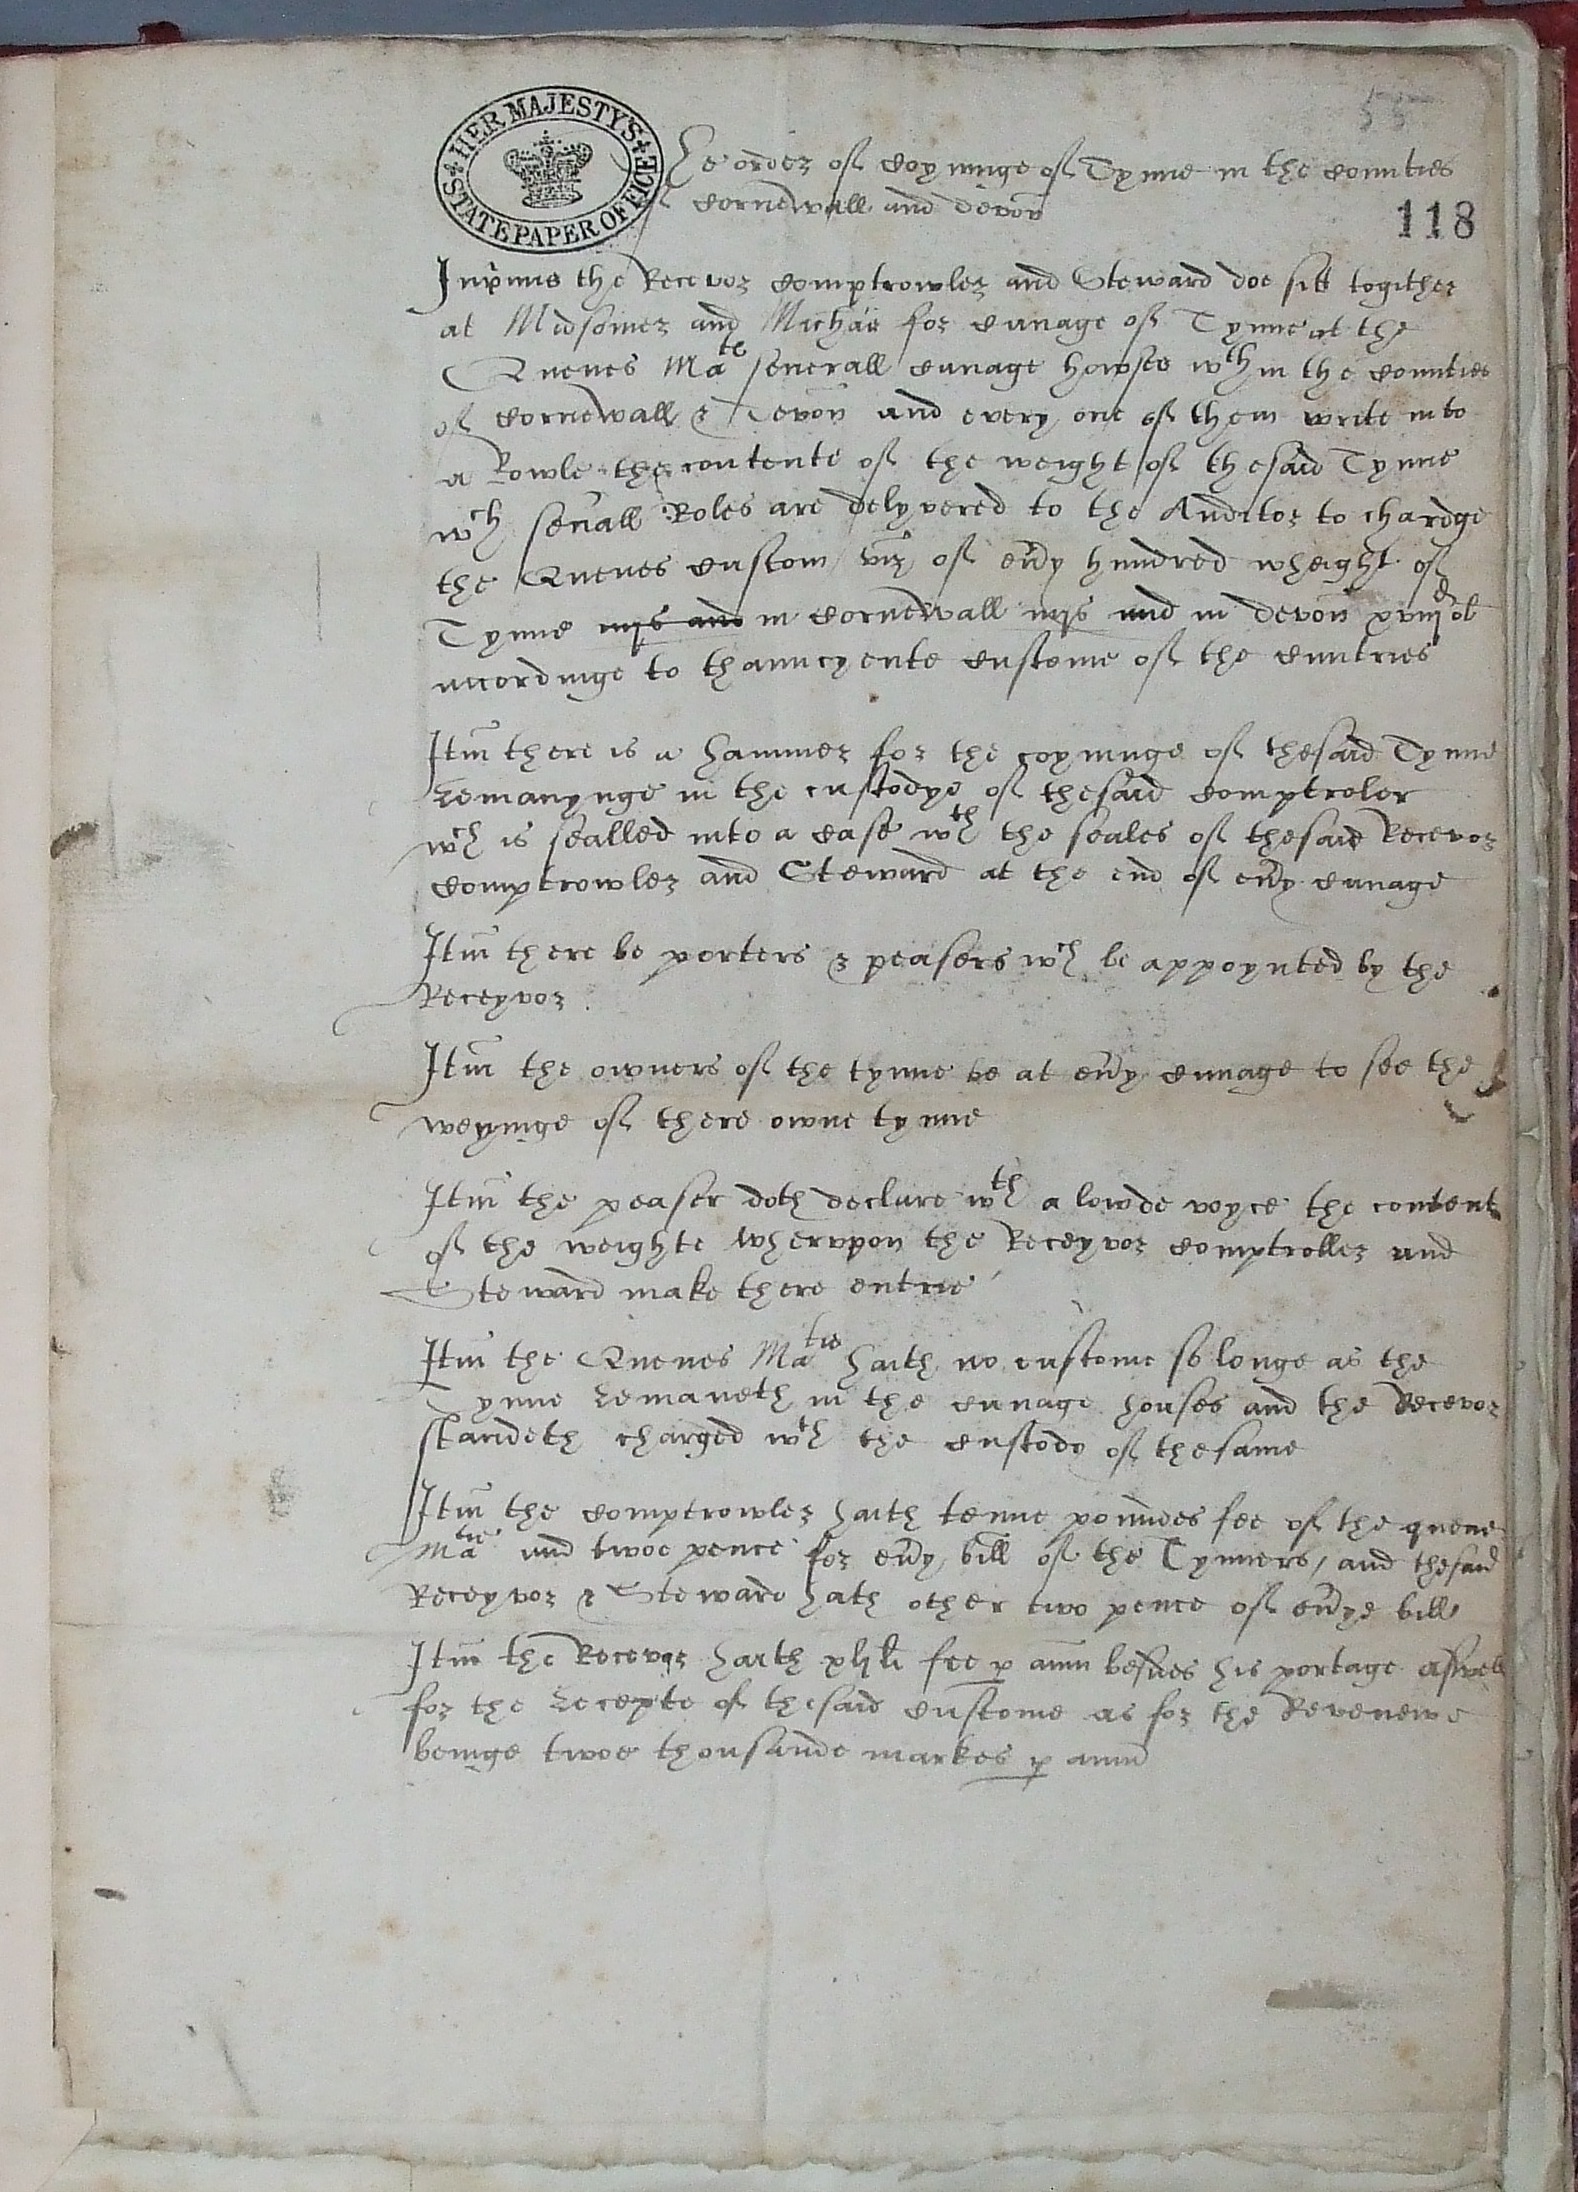 HER MAJESTY'S STATE PAPER OFFICE
55
he order of Coyninge of Tynne in the Counties
of Cornewall and Devon
118
Inprimis the Recevor Comptrowler and Steward doe sitt togither
at Midsomer and Michäs for Cunage of Tynne at the
Quenes Mate severall Cunage howses wth in the Counties
of Cornewall & Devon and every one of them write into
a Rowle the contente of the weight of thesaid Tynne
wch sevall Roles are delyvered to the Auditor to chardge
the Quenes Custom viz of evy hundred wheight of
Tynne iiijs and in Cornewall iiijs and in Devon xviijd ob
accordinge to thauncyente Custome of the Cuntries
Itm there is a hammer for the coyninge of thesaid Tynne
Remanynge in the custodye of thesaid Comptroler
wch is sealled into a Case wth the seales of thesaid Recevor
Comptrowler and Steward at the end of evy Cunage
Itm there be porters & peasers wch be appoynted by the
Receyvor
Itm the owners of the tynne be at evy Cunage to see the
weyinge of there owne tynne
Itm the peaser doth declare wth a lowde voyce the content
of the weighte whervpon the Receyvor Comptroller and
Steward make there entrie
Itm the Quenes Matie haith no custome so longe as the
Tynne Remaneth in the Cunage houses and the Recevor
standeth charged wth the Custody of thesame
Itm the Comptrowler haith tenne poundes fee of the quene
Matie and twoe pence for evy bill of the Tynners / and thesaid
Receyvor & Steward hath other two pence of evye bill
Itm the Recevor haith xlli fee p ann besides his portage aswell
for the Recepte of thesaid Custome as for the Revenewe
beinge twoe thousande markes p ann